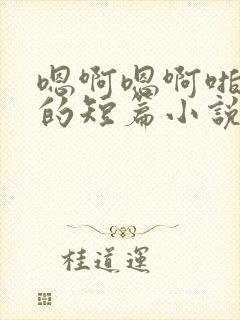 嗯啊嗯啊啪
的短篇小說
桂道運